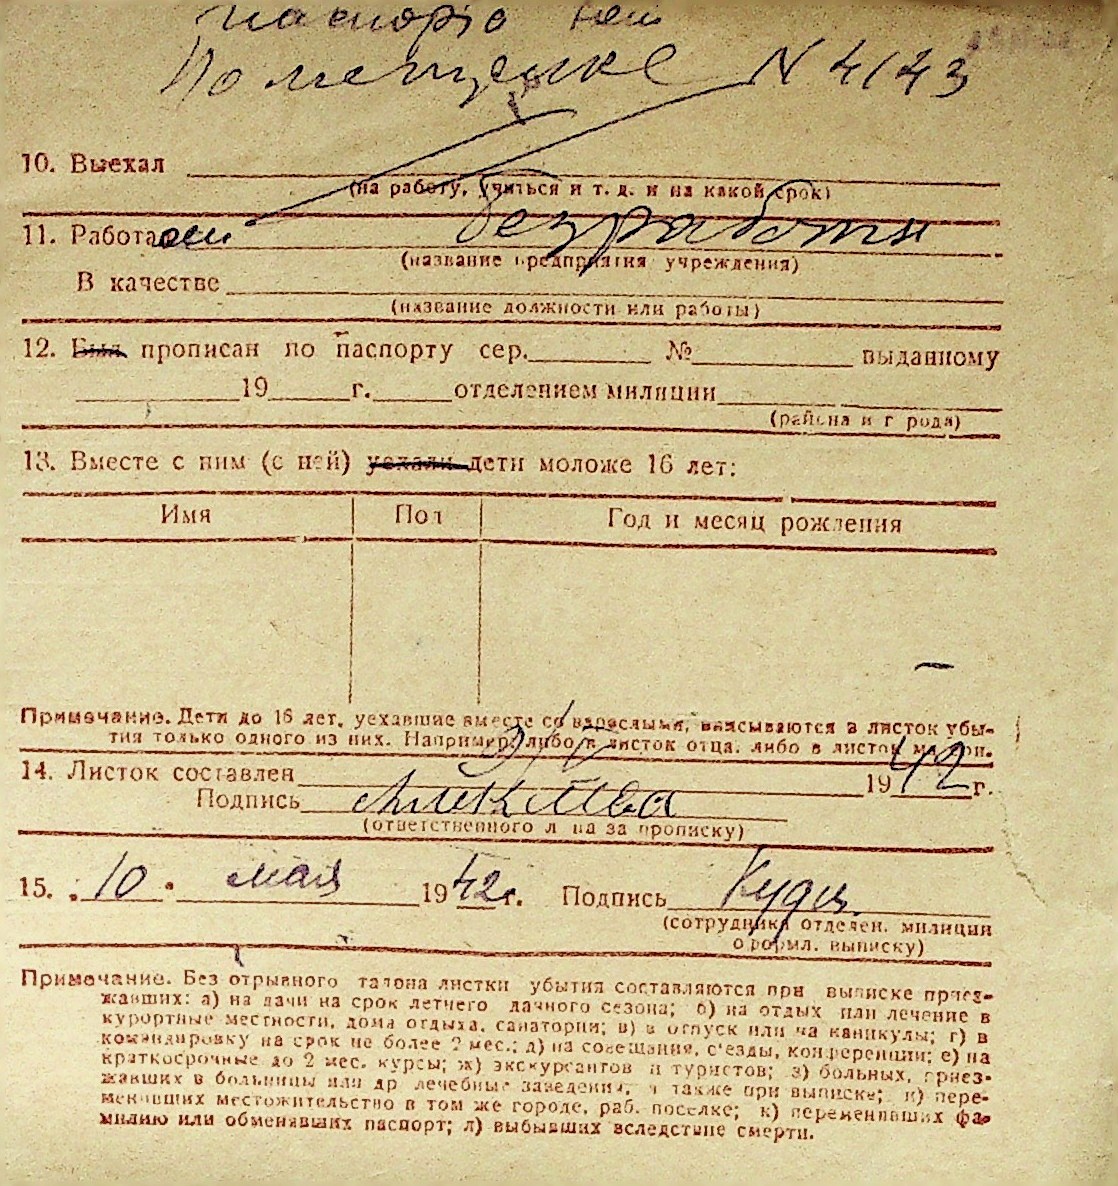 паспорта нет
№ 4143
10. Выехал
(на работу, учиться и т. д. и на какой срок)
11. Работа без работы
(название предприятия учреждения)
В качестве
(название должности или работы)
12. Был прописан по паспорту сер. № выданному
19 г. отделением милиции
(района и города)
13. Вместе с ним (с ней) уехали дети моложе 16 лет:
Имя Пол Год и месяц рождения
Примечание. Дети до 16 лет, уехавшие вместе со взрослыми, вписываются в листок убы-
тия только одного из них. Например: либо в листок отца, либо в листок матери.
14. Листок составлен 1942 г.
Подпись
(ответственного лица за прописку)
15. „10" мая 1942 г. Подпись
(сотрудника отделен. милиции
оформл. выписку)
Примечание. Без отрывного талона листки убытия составляются при выписке приез-
жавших: а) на дачи на срок летнего дачного сезона; б) на отдых или лечение в
курортные местности, дома отдыха, санатории; в) в отпуск или на каникулы; г) в
командировку на срок не более 2 мес.; д) на совещания, с'езды, конференции; е) на
краткосрочные до 2 мес. курсы; ж) экскурсантов и туристов; з) больных, приез-
жавших в больницы или др лечебные заведения, а также при выписке; и) пере-
менивших местожительство в том же городе, раб. поселке; к) переменивших фа-
милию или обменявших паспорт; л) выбывших вследствие смерти.